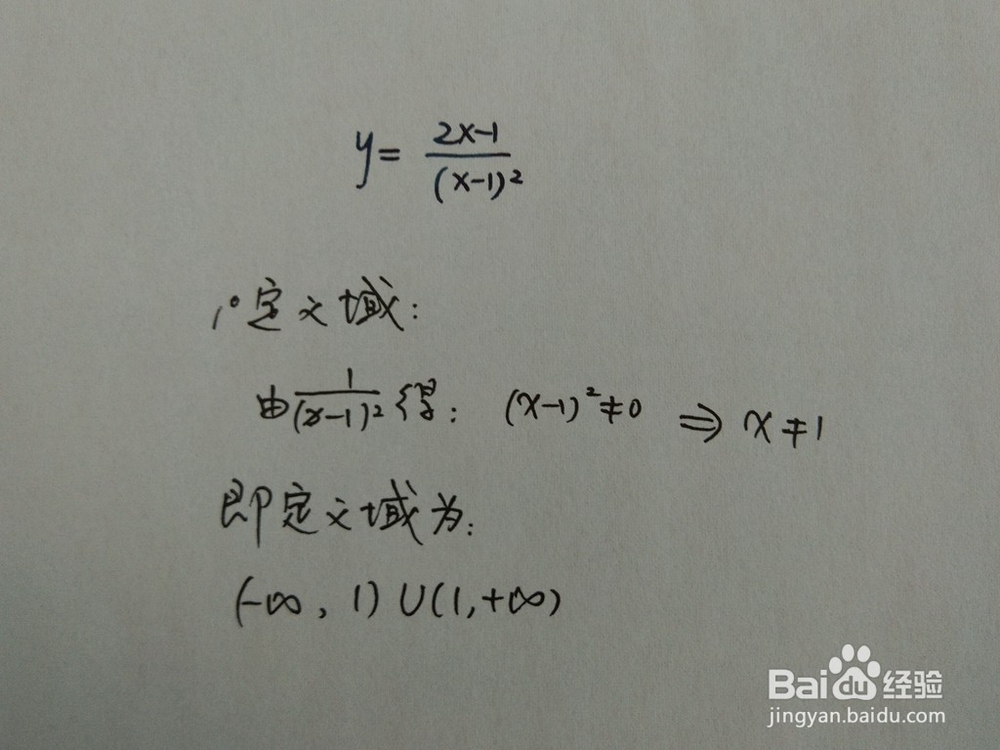 y = \frac{2x-1}{(x-1)^2}
1° 定义域:
由\frac{1}{(x-1)^2}得: (x-1)^2≠0 ⇒ x≠1
即定义域为:
(-∞, 1)∪(1,+∞)
Baidu经验
jingyan.baidu.com